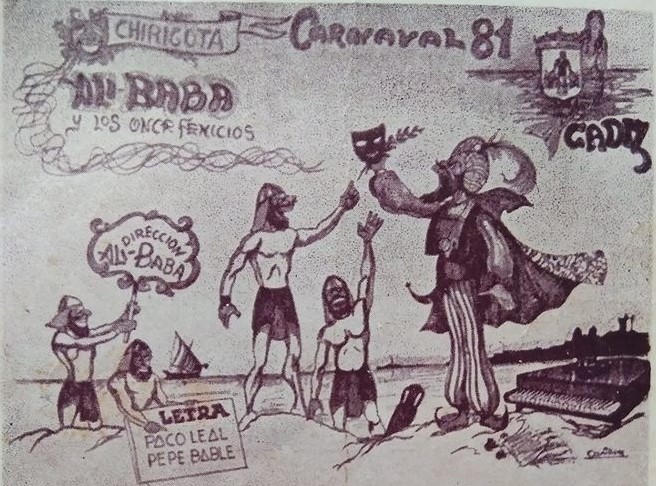 CHIRIGOTA
CARNAVAL 81
ALI-BABA
Y LOS ONCE FENICIOS
CADIZ
DIRECCION
ALI-BABA
LETRA
PACO LEAL
PEPE BABLE